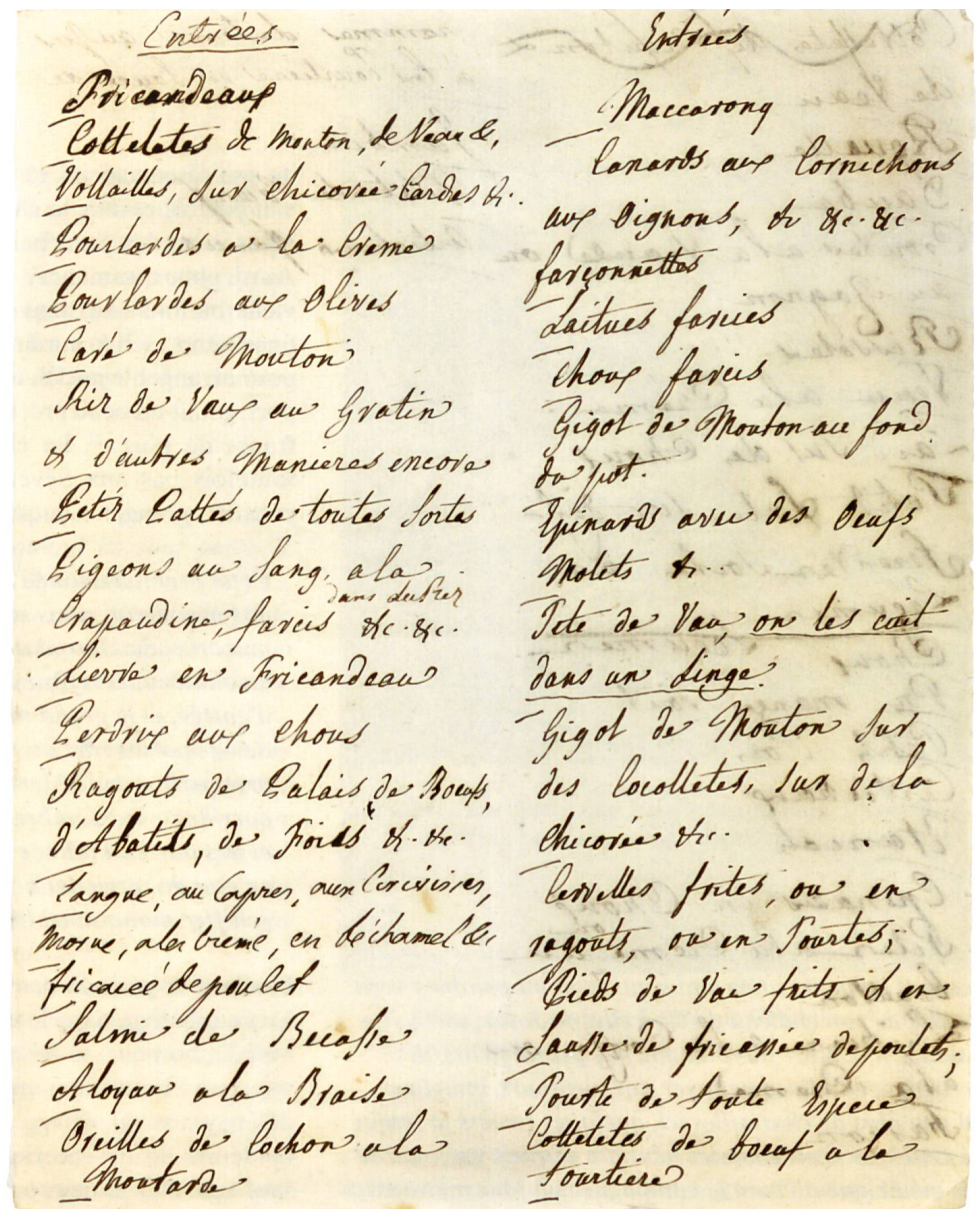 Entrées
Fricandeaux
Cotteletes de Mouton, de Veau &c,
Vollailles, sur chicorée Cardes &c.
Poulardes a la Creme
Poulardes aux Olives
Caré de Mouton
Riz de Vaux au Gratin
& d'autres Manieres encore
Petits Pattés de toutes Sortes
Pigeons au Sang, a la
dans du Riz
Crapaudine, farcis &c. &c.
Lievre en Fricandeau
Perdrix aux Chous
Ragouts de Palais de Boeufs,
d'Abatits, de Foies &c. &c.
Langue, au Capres, aux Ecrivisses,
Morue, a la Crémé, en béchamel &c
fricaceé de poulet
Salmi de Becasse
Aloyau a la Braise
Oreilles de Cochon a la
Moutarde
Entrées
Maccarony
Canards aux Cornichons
aux Oignons, &c &c. &c.
farçonnettes
Laitues farcies
Choux farcis
Gigot de Mouton au fond
du pot.
Epinards avec des Oeufs
Molets &c.
Tete de Vau, on les cuit
dans un Linge.
Gigot de Mouton sur
des Cocolletes, sur de la
Chicorée &c.
Cervelles frites, ou en
ragouts, ou en Tourtes;
Pieds de Vau frits & en
Sausse de fricassée de poulets;
Tourte de toute Espece
Cotteletes de boeuf a la
Tourtiere